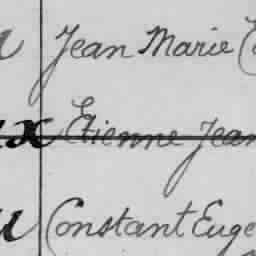 Jean Marie
Etienne Jean
Constant Euge